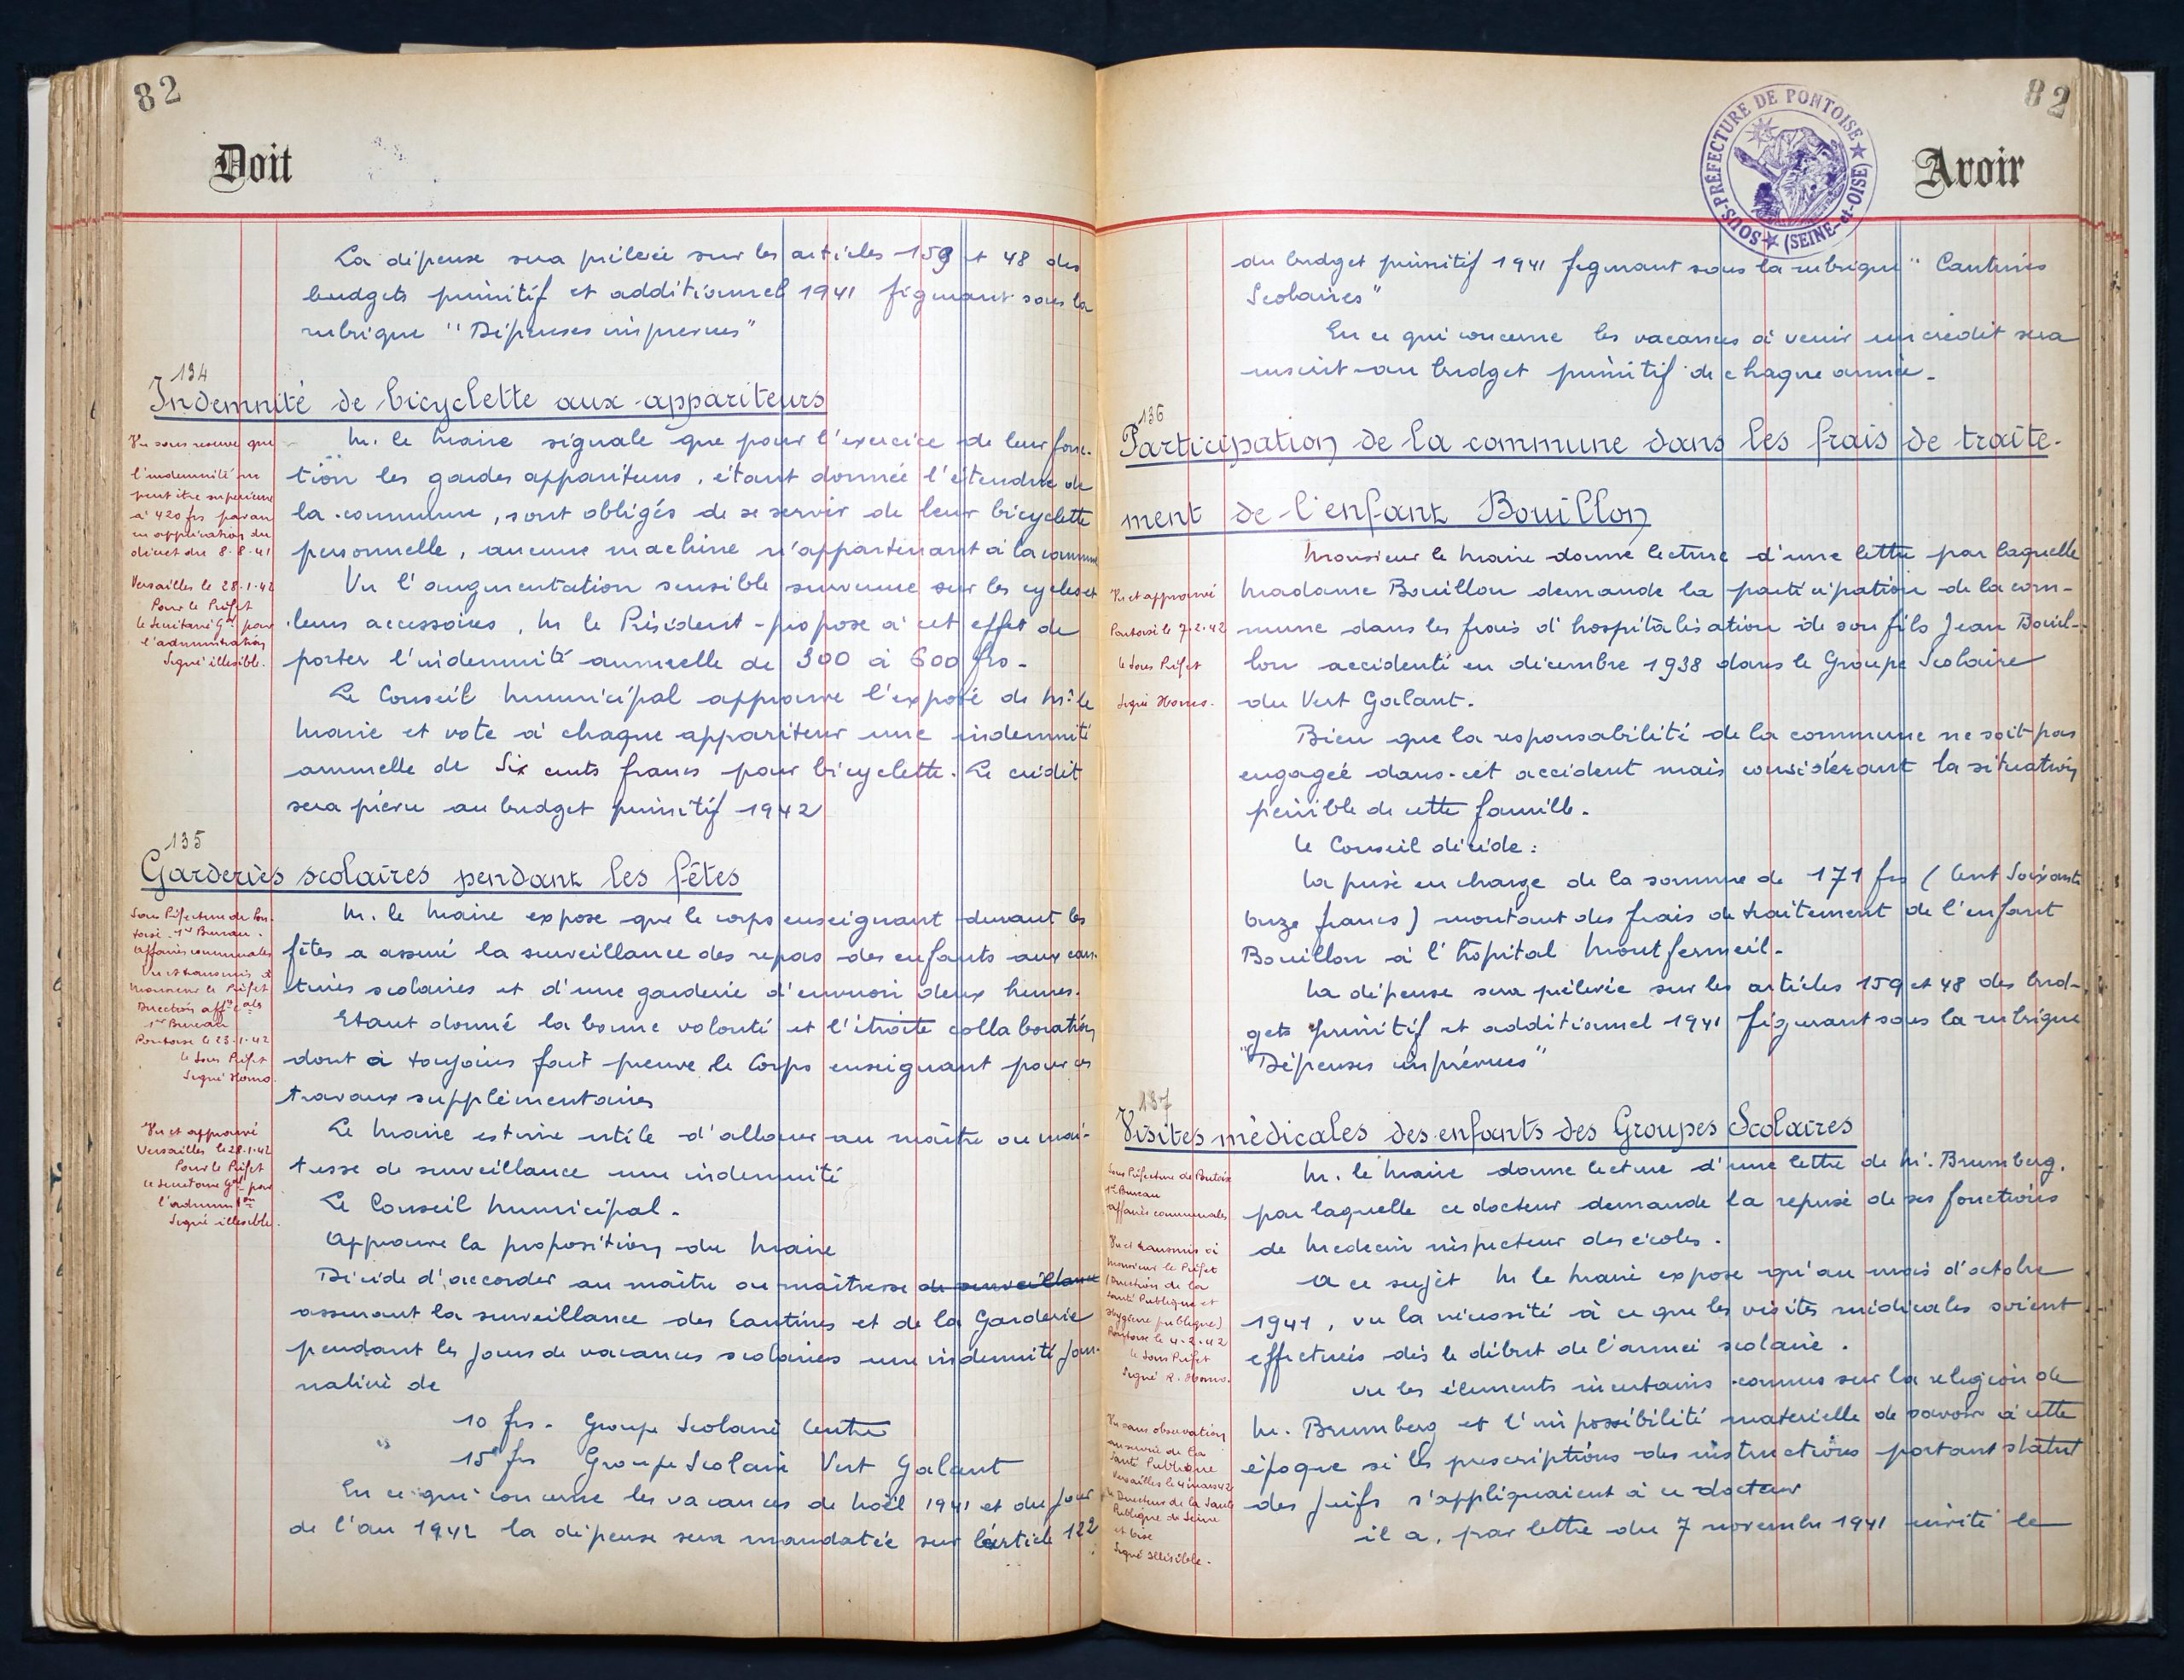 82
Doit
La dépense sera prélevée sur les articles 159 et 48 des
budgets primitif et additionnel 1941 figurant sous la
rubrique "Dépenses imprévues"
134
Indemnité de bicyclette aux appariteurs
Vu sous réserve que
l'indemnité ne
peut être supérieure
à 420 frs par an
en application du
décret du 8-8-41
Versailles le 28-1-42
Pour le Préfet
le Secrétaire Gal pour
l'administration
Signé illisible.
M. le Maire signale que pour l'exercice de leur fonc-
tion les gardes appariteurs, étant donnée l'étendue de
la commune, sont obligés de se servir de leur bicyclette
personnelle, aucune machine n'appartenant à la commune
Vu l'augmentation sensible survenue sur les cycles et
leurs accessoires, M le Président propose à cet effet de
porter l'indemnité annuelle de 300 à 600 frs-
Le Conseil Municipal approuve l'exposé de Mr le
Maire et vote à chaque appariteur une indemnité
annuelle de Six cents francs pour bicyclette. Le crédit
sera prévu au budget primitif 1942
135
Garderies scolaires pendant les fêtes
Sous Préfecture de Pon-
toise - 1er Bureau.
Affaires communales
Vu et transmis à
Monsieur le Préfet
Direction affres ales
1er Bureau
Pontoise le 23-1-42
le Sous Préfet
Signé Homo.
Vu et approuvé
Versailles le 28-1-42
Pour le Préfet
le Secrétaire Gal pour
l'adminiton
Signé illisible.
M. le Maire expose que le corps enseignant durant les
fêtes a assuré la surveillance des repas des enfants aux can-
tines scolaires et d'une garderie d'environ deux heures.
Etant donné la bonne volonté et l'étroite collaboration
dont a toujours fait preuve le Corps enseignant pour ces
travaux supplémentaires
Le Maire estime utile d'allouer au maître ou maî-
tresse de surveillance une indemnité
Le Conseil Municipal.
Approuve la proposition du Maire
Décide d'accorder au maître ou maîtresse de surveillance
assurant la surveillance des Cantines et de la Garderie
pendant les jours de vacances scolaires une indemnité jour-
nalière de
10 frs - Groupe Scolaire Centre
" 15 frs Groupe Scolaire Vert Galant
En ce qui concerne les vacances de Noël 1941 et du Jour
de l'an 1942 la dépense sera mandatée sur l'article 122
82
Avoir
SOUS-PRÉFECTURE DE PONTOISE ★ (SEINE-et-OISE) ★
du budget primitif 1941 figurant sous la rubrique "Cantines
Scolaires"
En ce qui concerne les vacances à venir un crédit sera
inscrit au budget primitif de chaque année-
136
Participation de la commune dans les frais de traite-
ment de l'enfant Bouillon
Vu et approuvé
Pontoise le 7-2-42
le Sous Préfet
Signé Homo.
Monsieur le Maire donne lecture d'une lettre par laquelle
Madame Bouillon demande la participation de la com-
mune dans les frais d'hospitalisation de son fils Jean Bouil-
lon accidenté en décembre 1938 dans le Groupe Scolaire
du Vert Galant.
Bien que la responsabilité de la commune ne soit pas
engagée dans cet accident mais considérant la situation
pénible de cette famille.
le Conseil décide:
La prise en charge de la somme de 171 frs (Cent Soixante
Onze francs) montant des frais de traitement de l'enfant
Bouillon à l'hôpital Montfermeil.
La dépense sera prélevée sur les articles 159 et 48 des bud-
gets primitif et additionnel 1941 figurant sous la rubrique
"Dépenses imprévues"
137
Visites médicales des enfants des Groupes Scolaires
Sous Préfecture de Pontoise
1er Bureau
Affaires communales
Vu et transmis à
Monsieur le Préfet
(Direction de la
Santé Publique et
Hygiène publique)
Pontoise le 4-2-42
le Sous Préfet
Signé R. Homo.
Vu sans observation
au service de la
Santé Publique
Versailles le 4 mars 42
Le Directeur de la Santé
Publique de Seine
et Oise
Signé illisible.
M. le Maire donne lecture d'une lettre de Mr. Brumberg.
par laquelle ce docteur demande la reprise de ses fonctions
de Medecin inspecteur des écoles.
A ce sujet M le Maire expose qu'au mois d'octobre
1941, vu la nécessité à ce que les visites médicales soient
effectuées dès le début de l'année scolaire.
Vu les éléments incertains connus sur la religion de
M. Brumberg et l'impossibilité matérielle de savoir à cette
époque si les prescriptions des instructions portant statut
des Juifs s'appliquaient à ce docteur
il a, par lettre du 7 novembre 1941 invité le